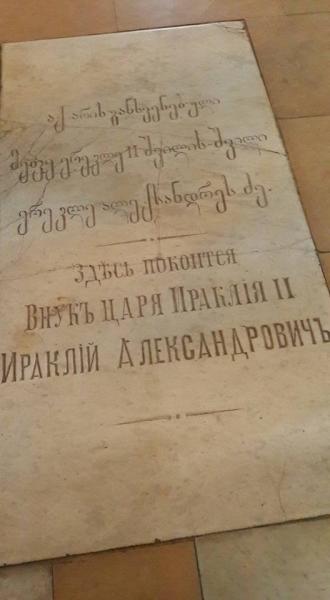 აქ არის განსვენებული
მეფე ერეკლე II შვილის-შვილი
ერეკლე ალექსანდრეს ძე.
ЗДѢСЬ ПОКОИТСЯ
ВНУКЪ ЦАРЯ ИРАКЛІЯ II
ИРАКЛІЙ АЛЕКСАНДРОВИЧЪ